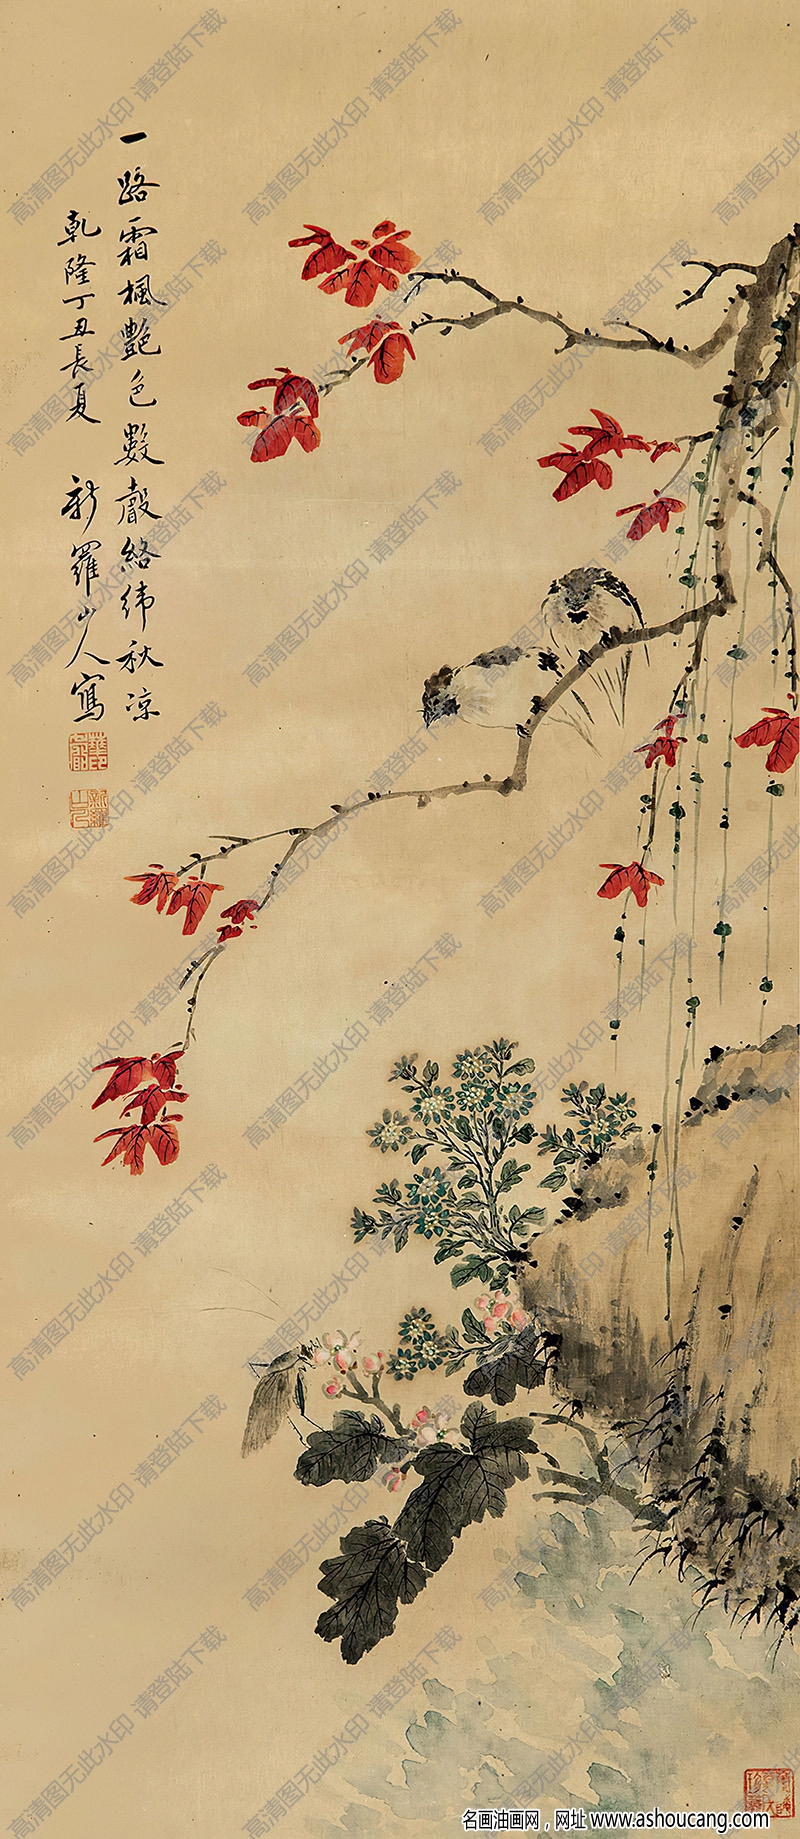 一路霜楓艷色數聲絡緯秋凉
乾隆丁丑長夏 新羅山人寫
華喦
新羅山人
高清图无此水印 请登陆下载
名画油画网，网址 www.ashoucang.com